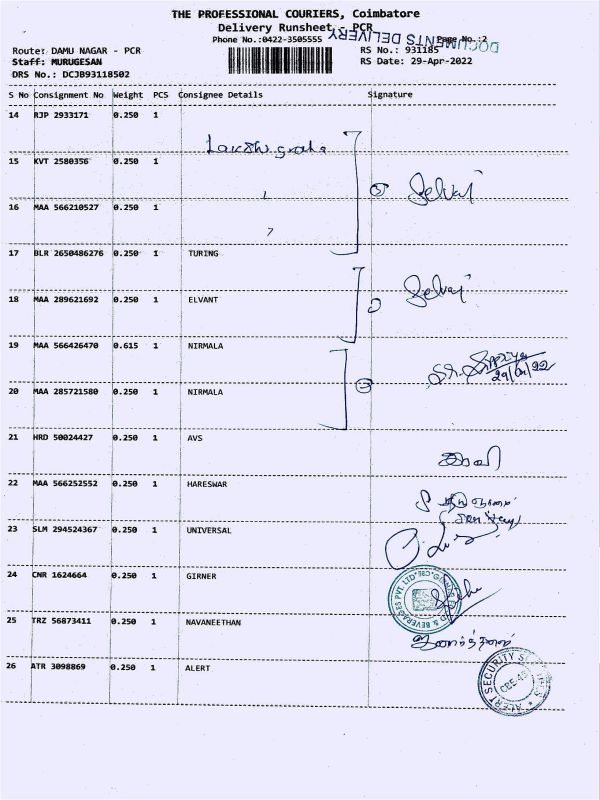 THE PROFESSIONAL COURIERS, Coimbatore
Delivery Runsheet - PCR
Phone No.:0422-3505555 Page No.:2
DOCUMENTS DELIVERY
Route: DAMU NAGAR - PCR RS No.: 931185
Staff: MURUGESAN RS Date: 29-Apr-2022
DRS No.: DCJB93118502
S No Consignment No Weight PCS Consignee Details Signature
14 RJP 2933171 0.250 1
15 KVT 2580356 0.250 1
Selvaj
16 MAA 566210527 0.250 1
17 BLR 2650486276 0.250 1 TURING
18 MAA 289621692 0.250 1 ELVANT Selvaj
19 MAA 566426470 0.615 1 NIRMALA
29/04/22
20 MAA 285721580 0.250 1 NIRMALA
21 HRD 50024427 0.250 1 AVS
22 MAA 566252552 0.250 1 HARESWAR
23 SLM 294524367 0.250 1 UNIVERSAL
24 CNR 1624664 0.250 1 GIRNER
& BEVERAGES PVT. LTD
25 TRZ 56873411 0.250 1 NAVANEETHAN
26 ATR 3098869 0.250 1 ALERT
ALERT SECURITY